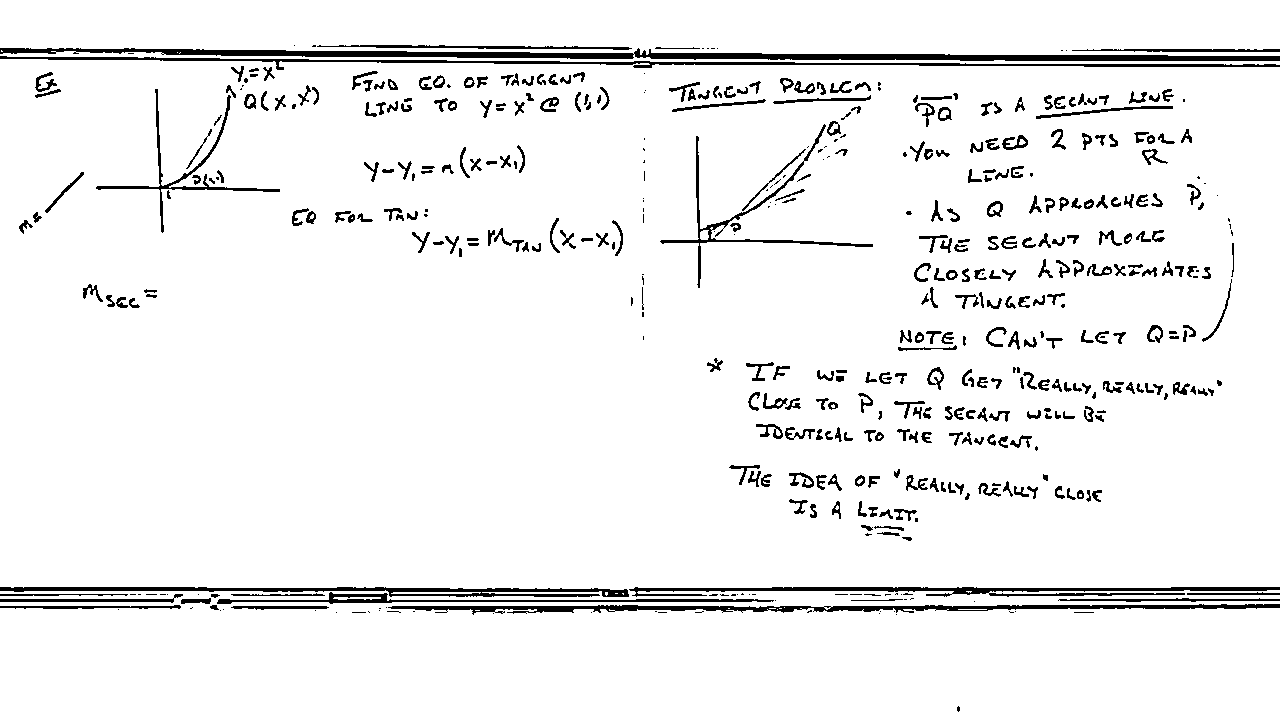 Ex
y=x²
Q(x,x²)
P(1,1)
1
m=
FIND EQ. OF TANGENT
LINE TO y=x² @ (1,1)
y-y₁=m(x-x₁)
EQ FOR TAN:
y-y₁=m_TAN(x-x₁)
m_SEC=
TANGENT PROBLEM:
Q
P
"PQ" IS A SECANT LINE.
·YOU NEED 2 PTS FOR A
LINE.
· AS Q APPROACHES P,
THE SECANT MORE
CLOSELY APPROXIMATES
A TANGENT.
NOTE: CAN'T LET Q=P
* IF WE LET Q GET "REALLY, REALLY, REALLY"
CLOSE TO P, THE SECANT WILL BE
IDENTICAL TO THE TANGENT.
THE IDEA OF "REALLY, REALLY" CLOSE
IS A LIMIT.